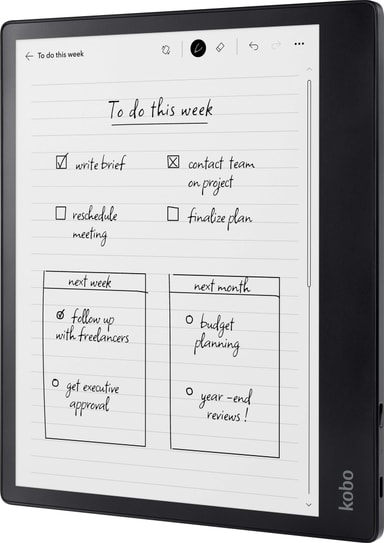 To do this week
To do this week
write brief
contact team
on project
reschedule
meeting
finalize plan
next week
follow up
with freelancers
get executive
approval
next month
budget
planning
year-end
reviews!
kobo